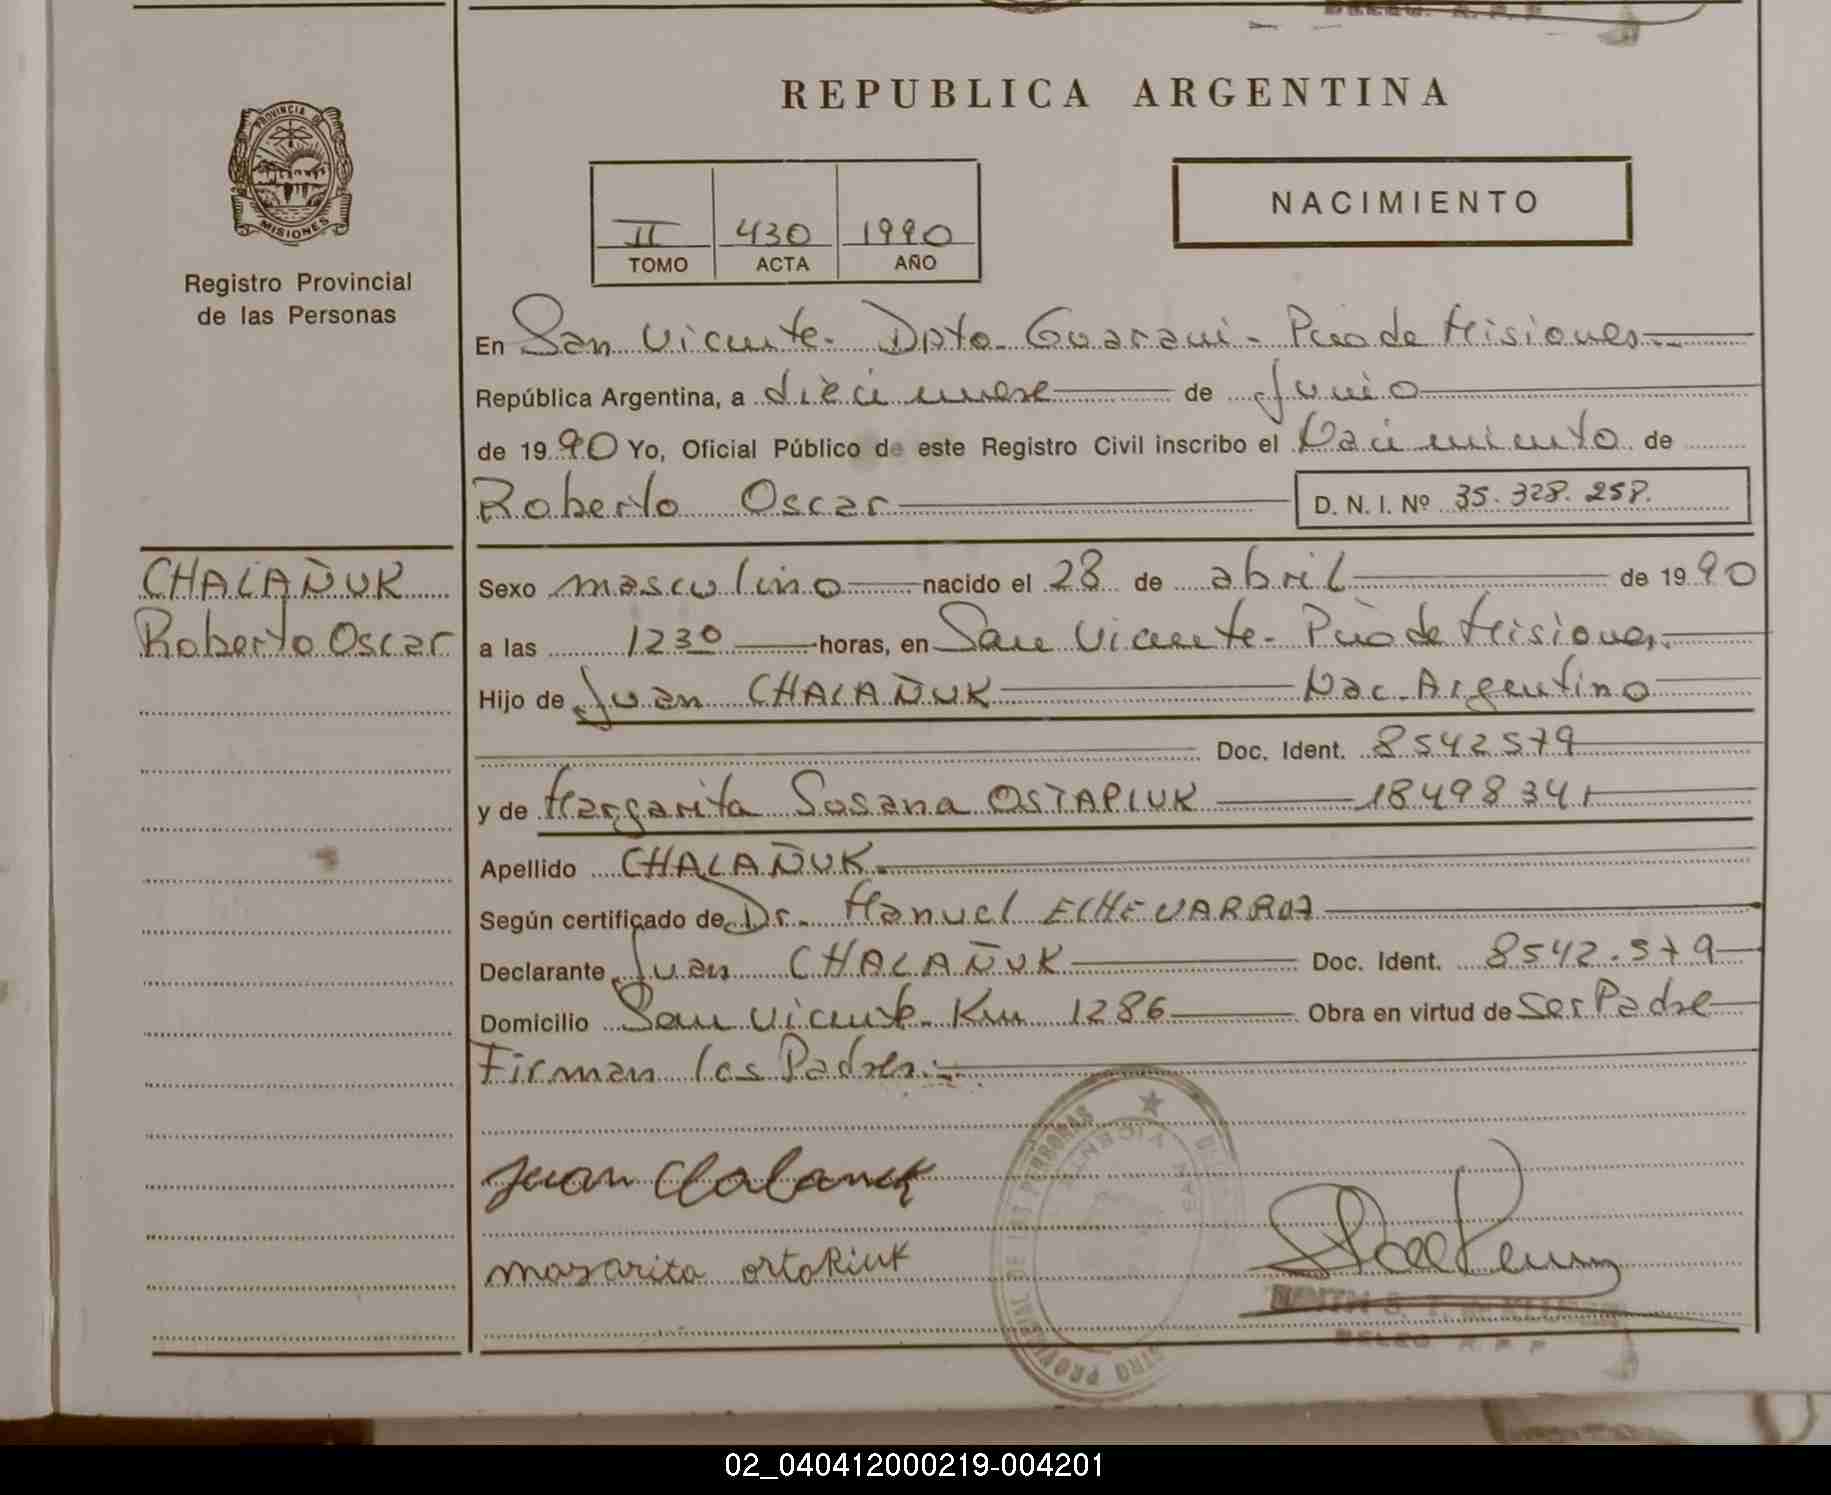 REPUBLICA ARGENTINA
PROVINCIA DE
MISIONES
Registro Provincial
de las Personas
II 430 1990
TOMO ACTA AÑO
NACIMIENTO
En San Vicente - Dpto - Guarani - Pcia de Misiones
República Argentina, a diecinueve de Junio
de 1990 Yo, Oficial Público de este Registro Civil inscribo el Nacimiento de
Roberto Oscar D. N. I. Nº 35.328.258.
CHALAÑUK
Roberto Oscar
Sexo masculino nacido el 28 de abril de 1990
a las 1230 horas, en San Vicente - Pcia de Misiones.
Hijo de Juan CHALAÑUK Nac. Argentino
Doc. Ident. 8542579
y de Margarita Susana OSTAPIUK 18498341
Apellido CHALAÑUK
Según certificado de Dr. Manuel
Declarante Juan CHALAÑUK Doc. Ident. 8542.579
Domicilio San Vicente - Km 1286 Obra en virtud de Ser Padre
Firman los Padres.
Juan Chalanuk
REGISTRO PROVINCIAL DE LAS PERSONAS
SAN VICENTE
02_040412000219-004201